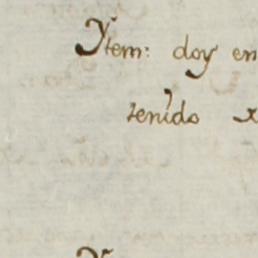 Ytem: doy en
tenido